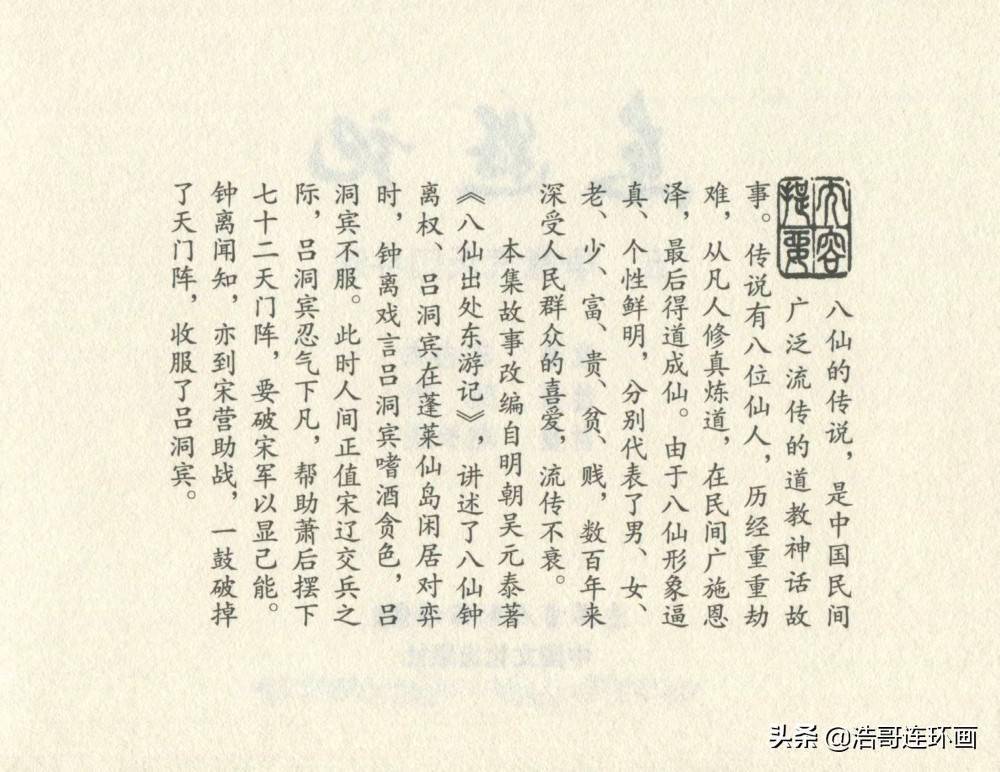 内容提要
八仙的传说，是中国民间
广泛流传的道教神话故
事。传说有八位仙人，历经重重劫
难，从凡人修真炼道，在民间广施恩
泽，最后得道成仙。由于八仙形象逼
真、个性鲜明，分别代表了男、女、
老、少、富、贵、贫、贱，数百年来
深受人民群众的喜爱，流传不衰。
本集故事改编自明朝吴元泰著
《八仙出处东游记》，讲述了八仙钟
离权、吕洞宾在蓬莱仙岛闲居对弈
时，钟离戏言吕洞宾嗜酒贪色，吕
洞宾不服。此时人间正值宋辽交兵之
际，吕洞宾忍气下凡，帮助萧后摆下
七十二天门阵，要破宋军以显己能。
钟离闻知，亦到宋营助战，一鼓破掉
了天门阵，收服了吕洞宾。
头条 @浩哥连环画